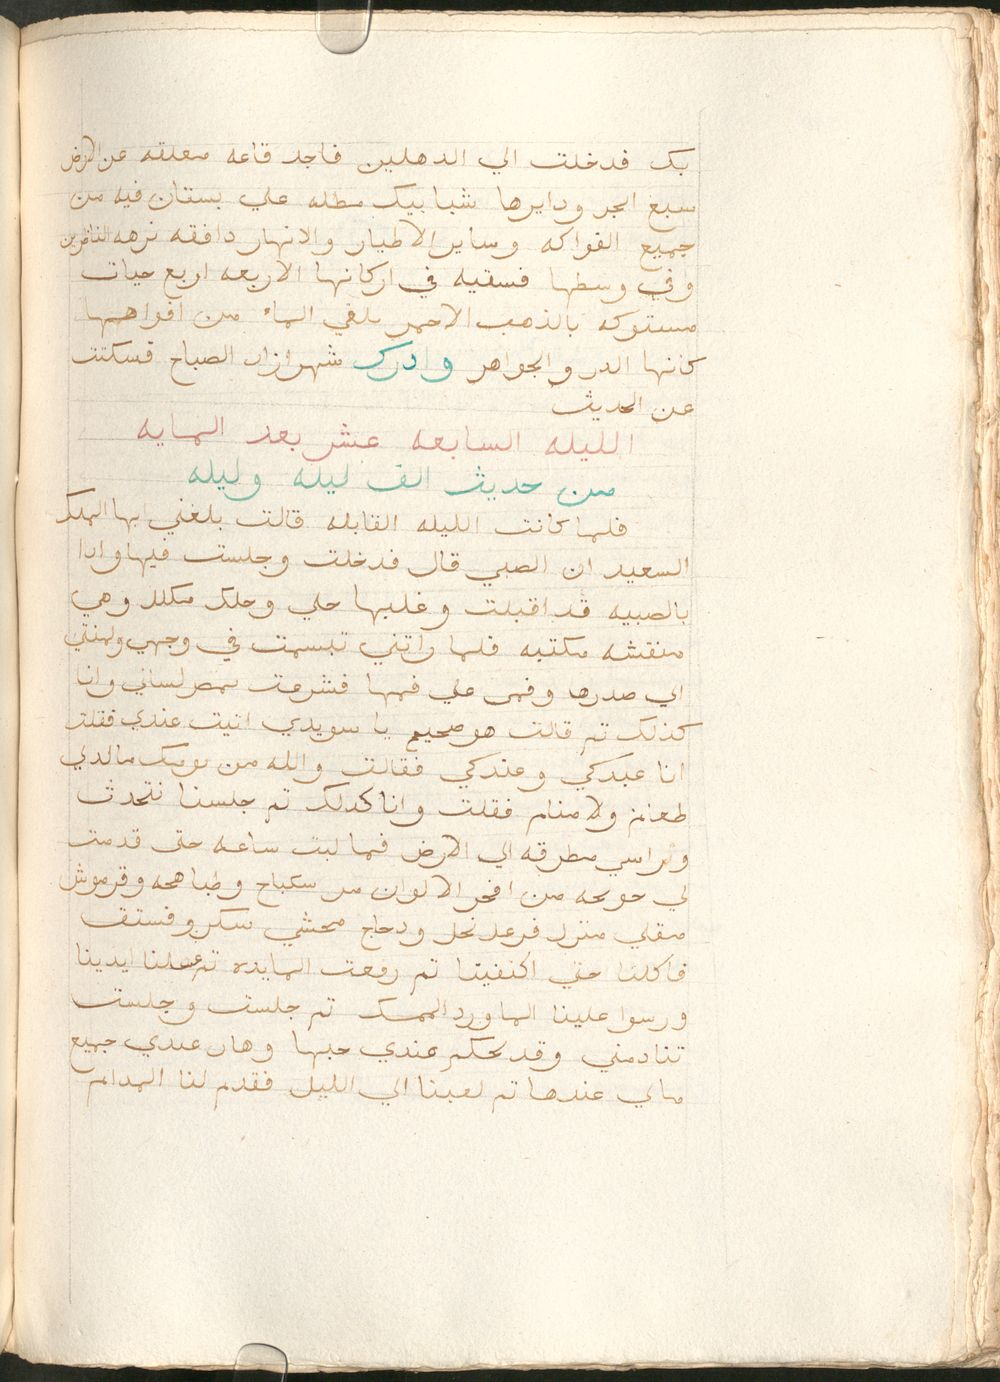 بك فدخلت الي الدهلين فاجد قاعه معلقه عن الارض
سبع الجر ودايرها شبابيك مطله علي بستان فيه من
جميع الفواكه وساير الاطيار والانهار دافقه نزهه الناظرين
وفي وسطها فسقيه في اركانها الاربعه اربع حيات
مستوكه بالذهب الاحمر يلقي الماء من افواهها
كانها الدر والجواهر وادرك شهرازاد الصباح فسكتت
عن الحديث
الليله السابعه عشر بعد المايه
من حديث الف ليله وليله
فلما كانت الليله القابله قالت بلغني ايها الملك
السعيد ان الصبي قال فدخلت وجلست فيها وادا
بالصبيه قد اقبلت وعليها حلي وحلل مكلل وهي
منقشه مكتبه فلما راتني تبسمت في وجهي ولمتني
الي صدرها وفمي علي فمها فشرعت تمص لساني وانا
كذلك تم قالت هو صحيح يا سويدي اتيت عندي فقلت
انا عبدكي وعندكي فقالت والله من يومك مالدلي
طعام ولا منام فقلت وانا كدلك تم جلسنا نتحدث
وراسي مطرقه الي الارض فما لبت ساعه حتي قدمت
لي من افخر الالوان من سكباج وطباهجه
مقلي منزل نحل ودجاج محشي سكر وفستق
فاكلنا حتي اكتفينا تم رفعت المايده تم غسلنا ايدينا
ورسوا علينا الماورد الممسك تم جلست وجلست
تنادمني وقد تحكم عندي حبها وهان عندي جميع
مالي عندها تم لعبنا الي الليل فقدم لنا المدام